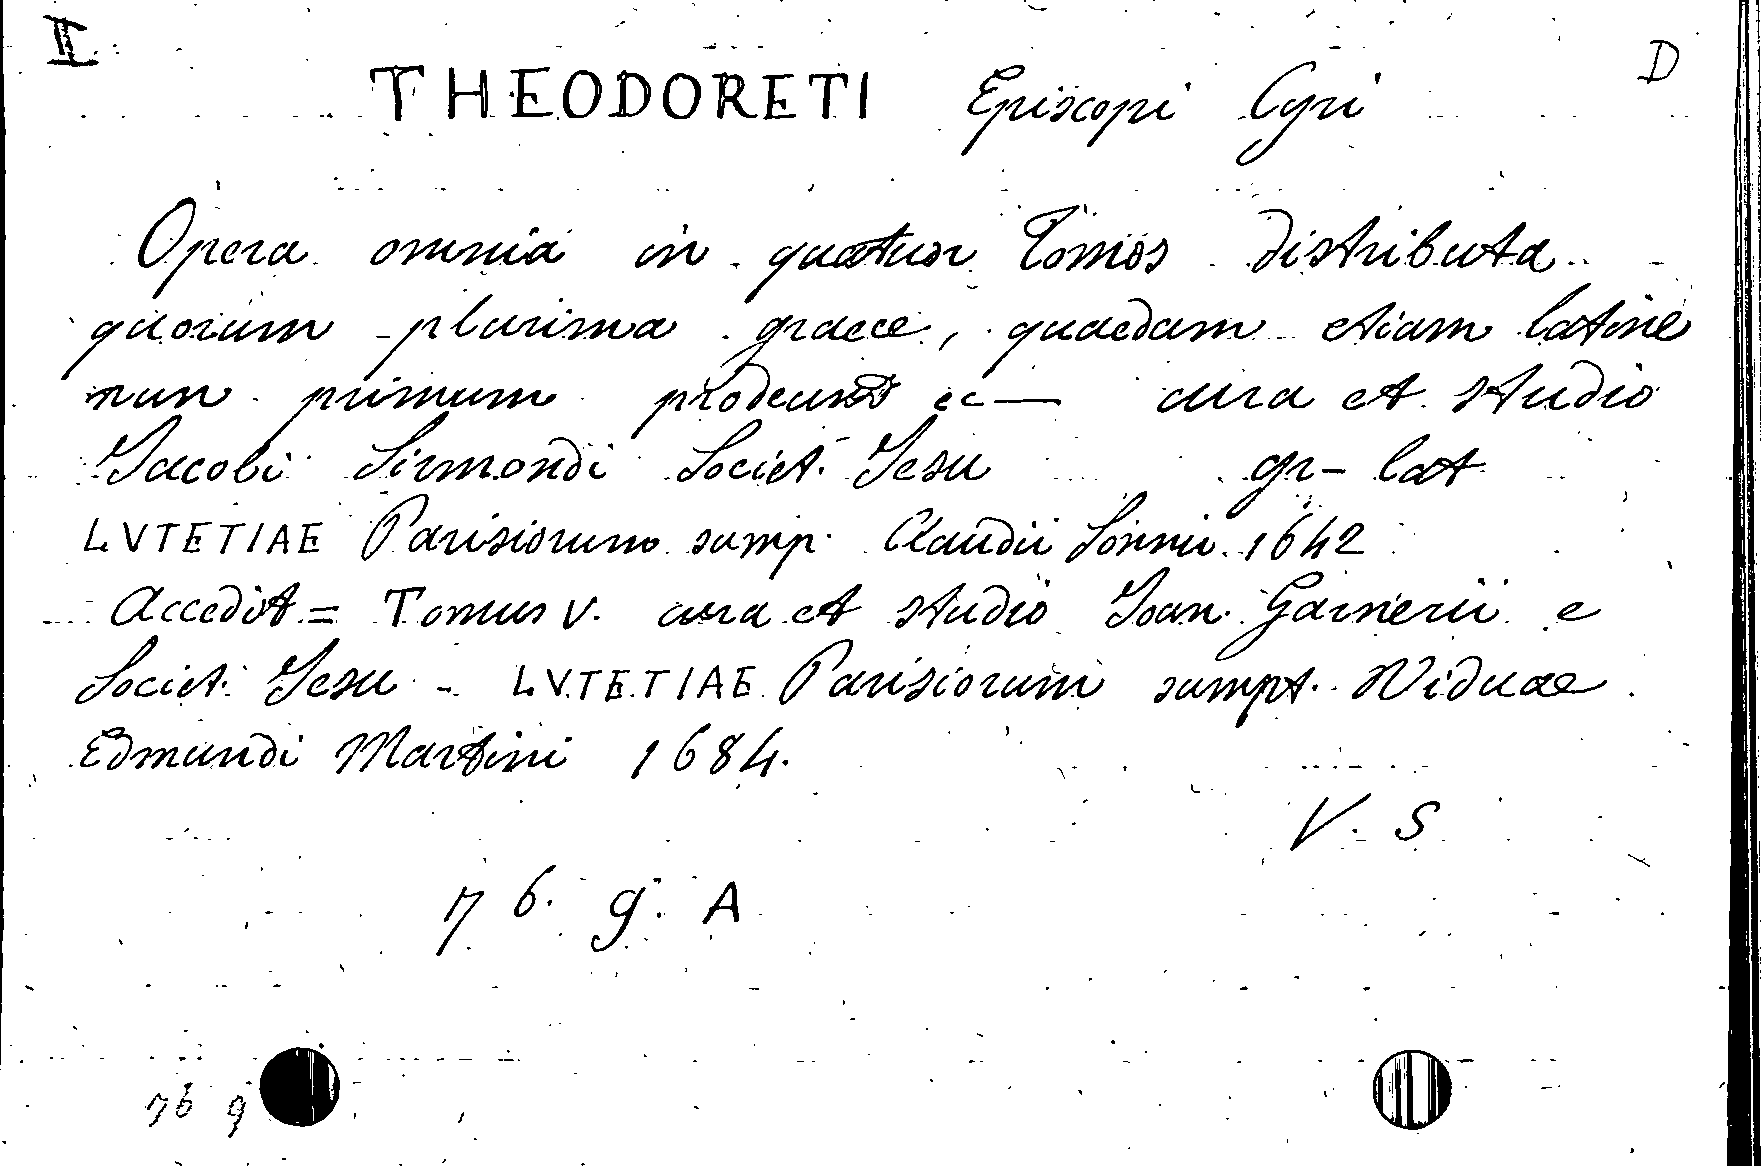 I
D
THEODORETI Episcopi Cyri
Opera omnia in quatuor Tomos distributa
quorum plurima graece, quaedam etiam latine
nun primum prodeunt ec — cura et studio
Jacobi Sirmondi Societ. Jesu gr- lat
LVTETIAE Parisiorum sump. Claudii Sonnii 1642
Accedit = Tomus V. cura et studio Joan. Garnerii e
Societ. Jesu - LVTETIAE Parisiorum sumpt. Viduae
Edmundi Martini 1684.
V. S
76. g. A
76 g